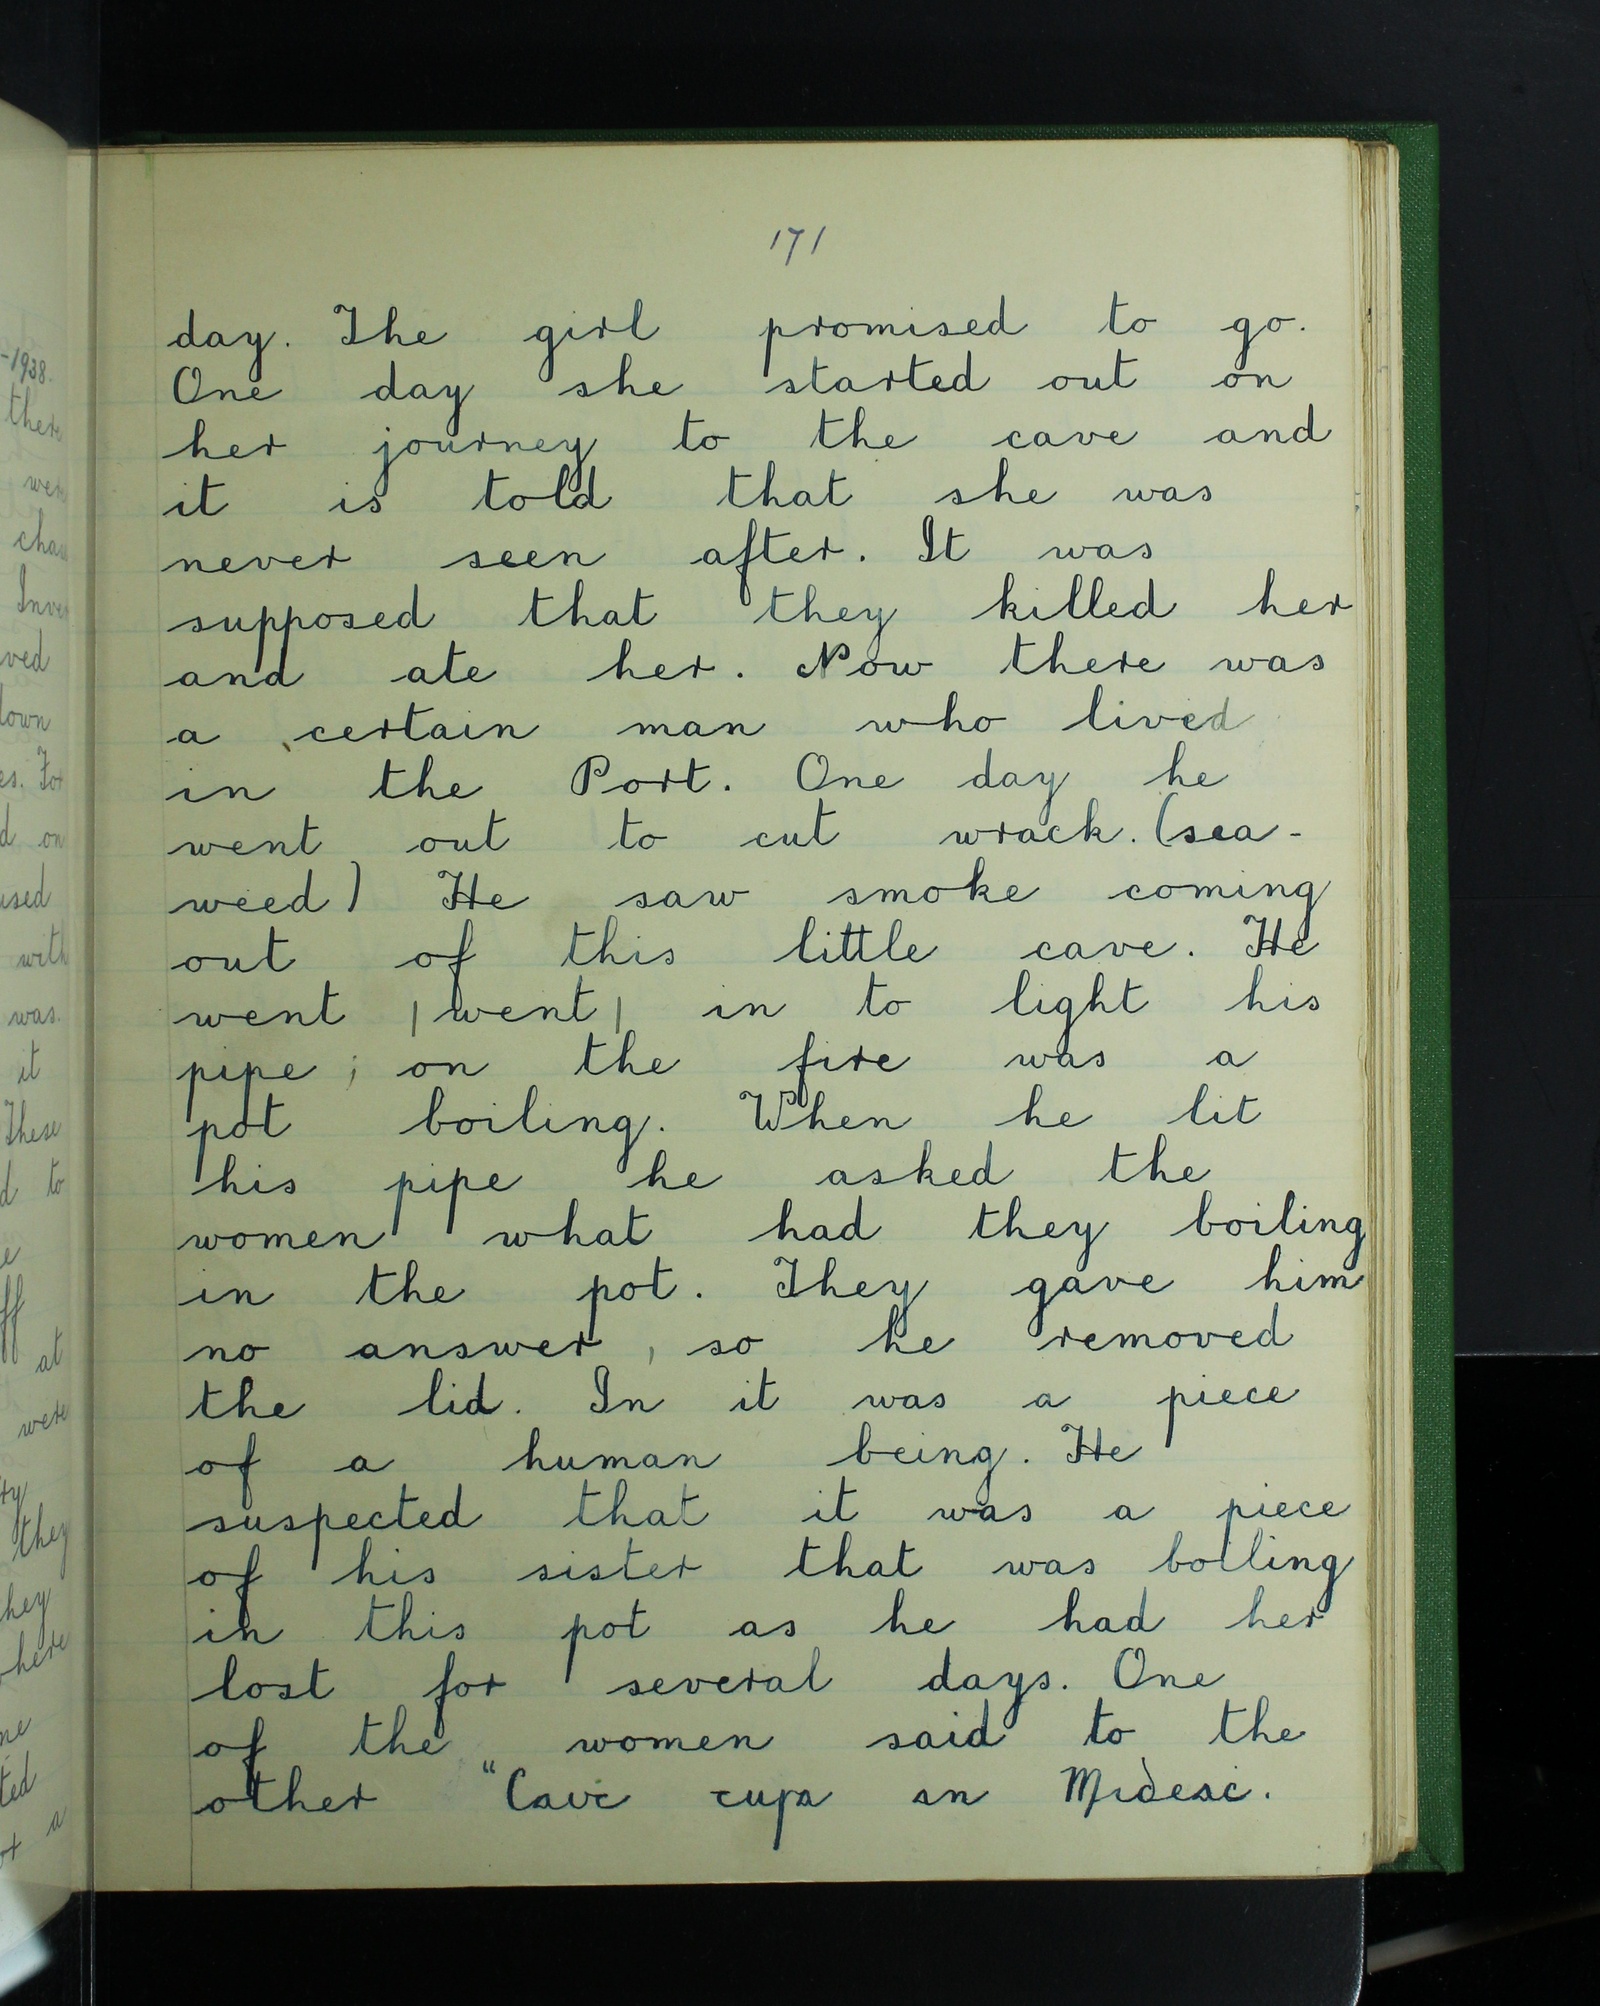 171
day. The girl promised to go.
One day she started out on
her journey to the cave and
it is told that she was
never seen after. It was
supposed that they killed her
and ate her. Now there was
a certain man who lived
in the Port. One day he
went out to cut wrack. (sea-
weed) He saw smoke coming
out of this little cave. He
went |went| in to light his
pipe; on the fire was a
pot boiling. When he lit
his pipe he asked the
women what had they boiling
in the pot. They gave him
no answer, so he removed
the lid. In it was a piece
of a human being. He
suspected that it was a piece
of his sister that was boiling
in this pot as he had her
lost for several days. One
of the women said to the
other " an